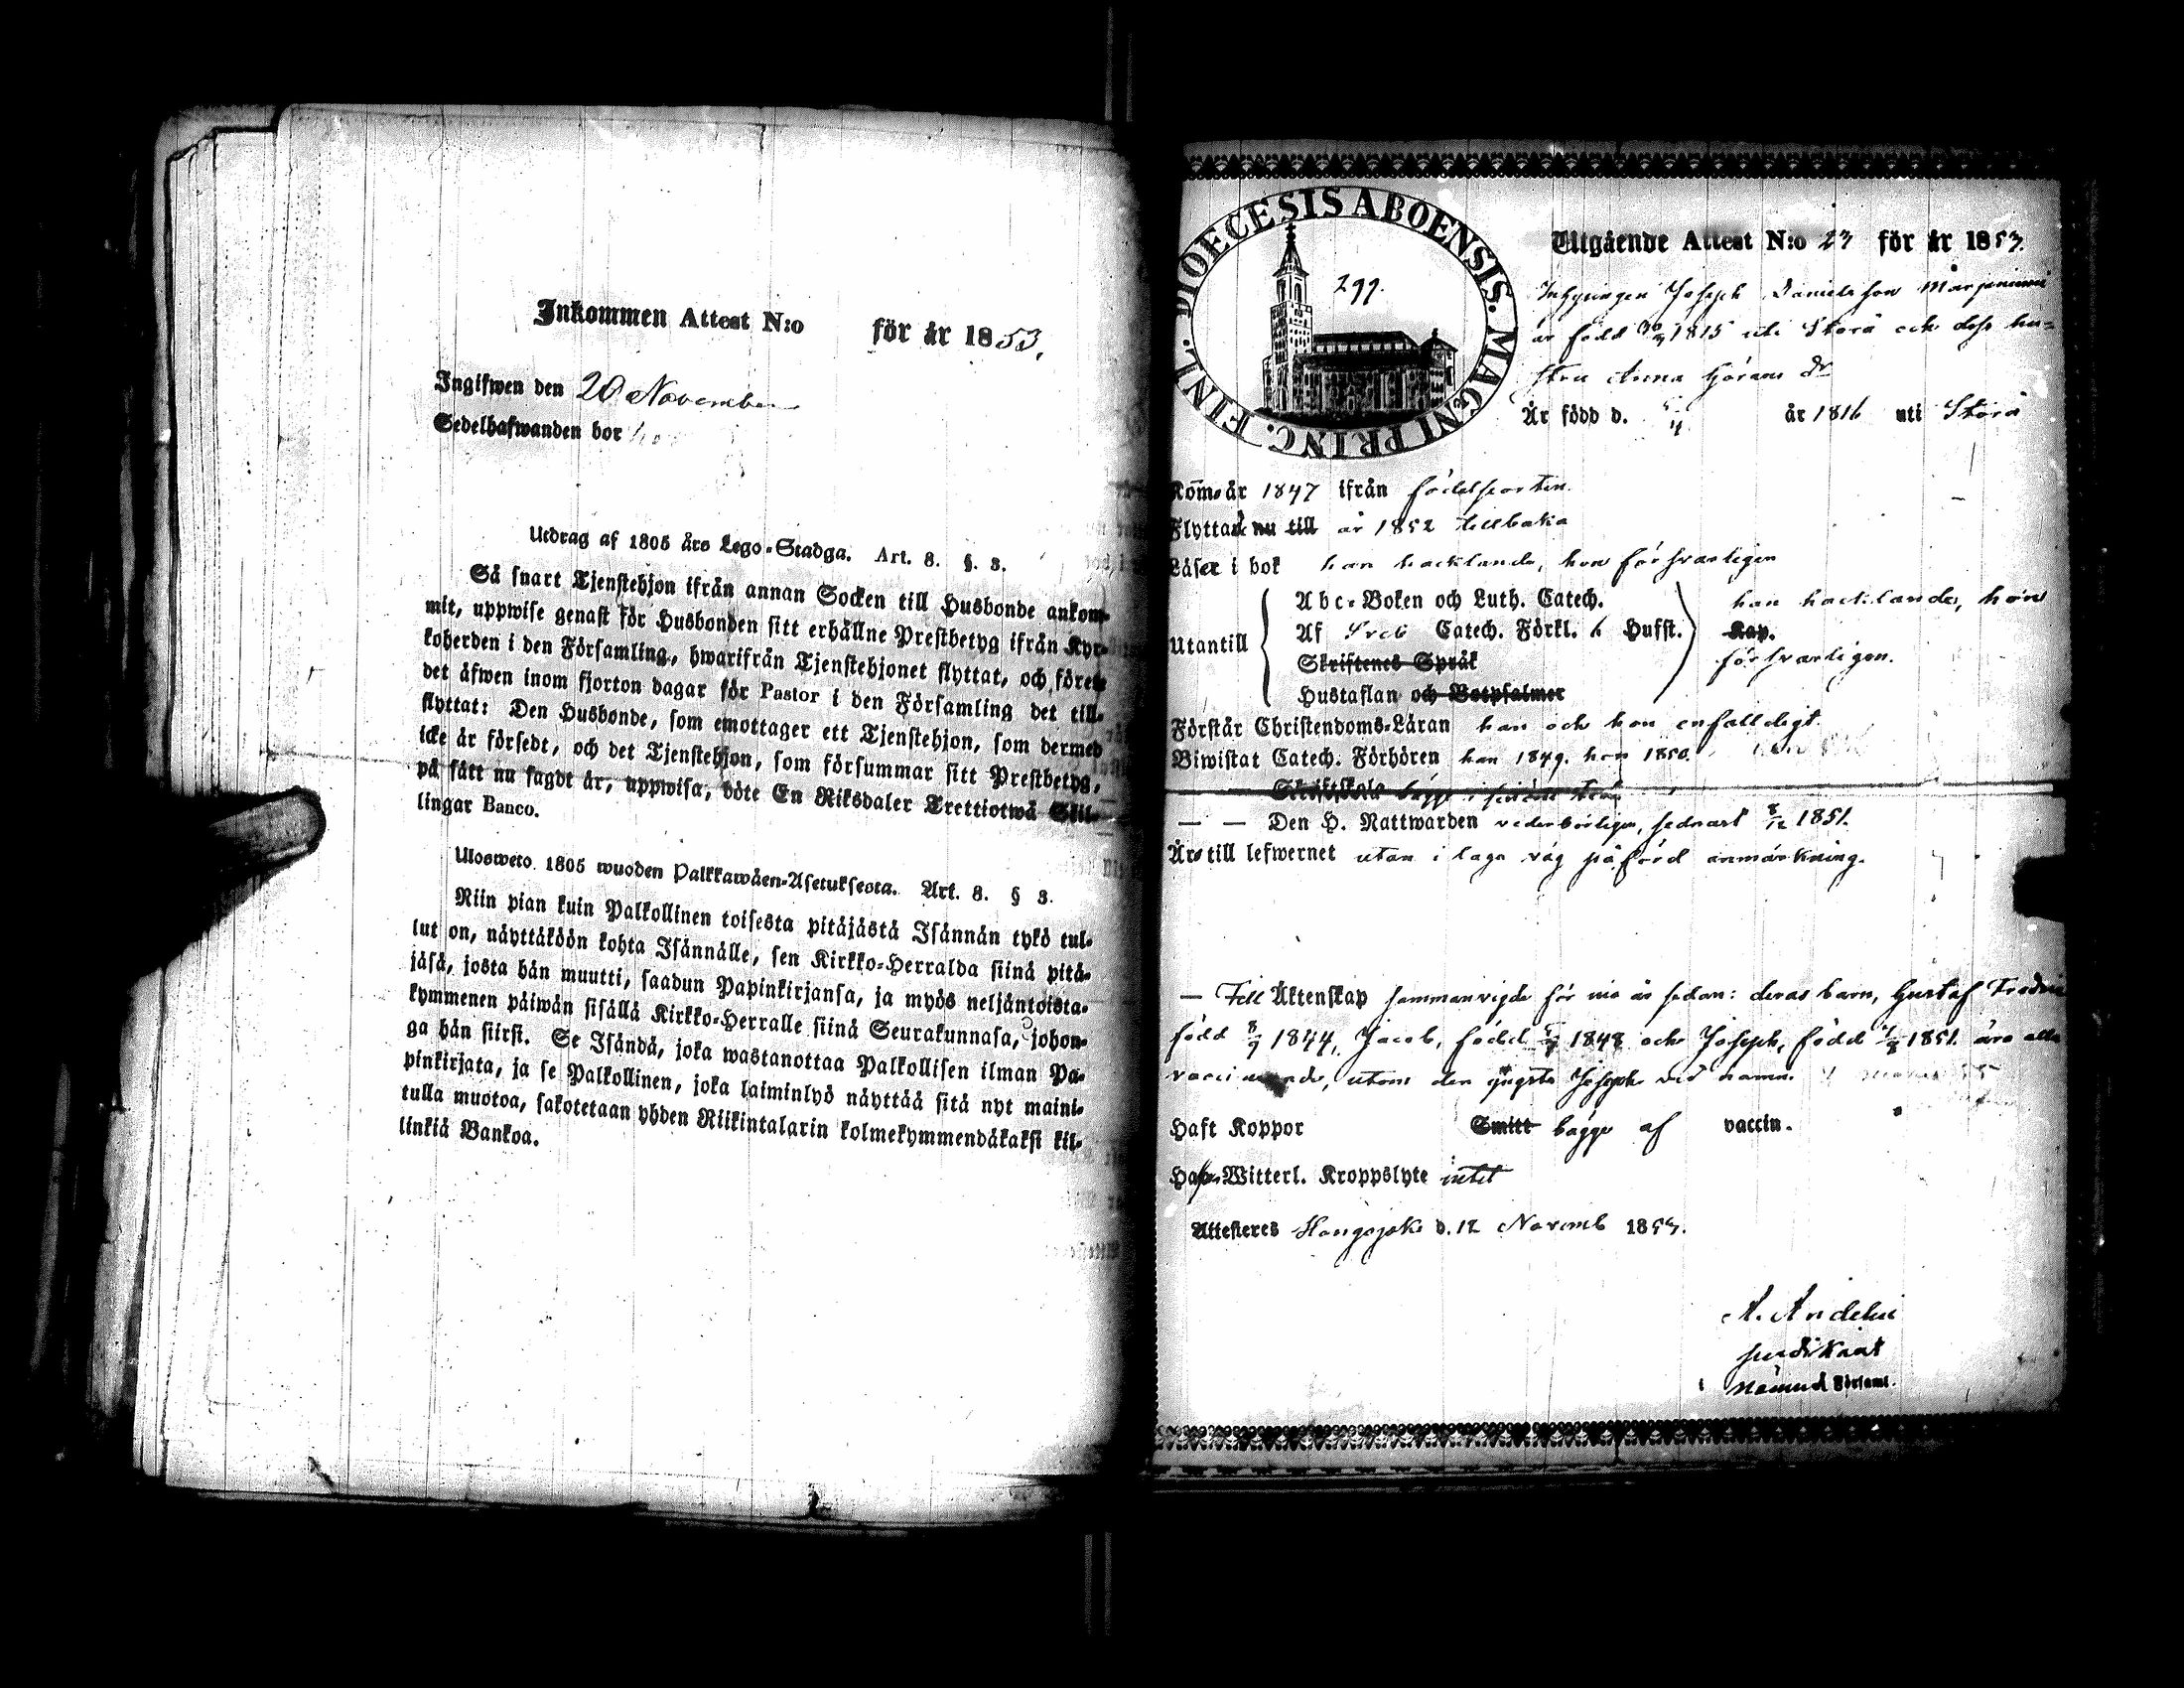 Inkommen Attest N:o för år 1853.
Ingifwen den 20 November
Sedelhafwanden bor
Utdrag af 1805 års Lego-Stadga. Art. 8. §. 3.
Så snart Tjenstehjon ifrån annan Socken till Husbonde ankom-
mit, uppwise genast för Husbonden sitt erhållne Prestbetyg ifrån Kyr-
koherden i den Församling, hwarifrån Tjenstehjonet flyttat, och förete
det äfwen inom fjorton dagar för Pastor i den Församling det till-
flyttat: Den Husbonde, som emottager ett Tjenstehjon, som dermed
icke är försedt, och det Tjenstehjon, som försummar sitt Prestbetyg,
på sätt nu sagdt är, uppwisa, böte En Riksdaler Trettiotwå Skil-
lingar Banco.
Ulosweto 1805 wuoden Palkkawäen-Asetuksesta. Art. 8. § 3.
Niin pian kuin Palkollinen toisesta pitäjästä Isännän tykö tul-
lut on, näyttäköön kohta Isännälle, sen Kirkko-Herralda siinä pitä-
jäsä, josta hän muutti, saadun Papinkirjansa, ja myös neljäntoista-
kymmenen päiwän sisällä Kirkko-Herralle siinä Seurakunnasa, johon-
ga hän siirsi. Se Isändä, joka wastanottaa Palkollisen ilman Pa-
pinkirjata, ja se Palkollinen, joka laiminlyö näyttää sitä nyt maini-
tulla muotoa, sakotetaan yhden Riikintalarin kolmekymmendäkaksi kil-
linkiä Bankoa.
DIOECESIS ABOENSIS. MAGNI PRINC. FINL.
299.
Utgående Attest N:o 23 för år 1853.
Inhysingen Joseph Danielsson
är född 1815 uti Storå och dess hu-
stru Anna Görans dr
Är född d. år 1816 uti Storå
Kom år 1847 ifrån födelseorten.
Flyttade nu till år 1852 tillbaka
Läser i bok han hacklande, hon försvarligen
Utantill
Abc-Boken och Luth. Catech.
Af Sveb Catech. Förkl. & Hufst.
Skriftenes Språk
Hustaflan och Botpsalmer
han hacklande, hon
Kap.
försvarligen.
Förstår Christendoms-Läran han och hon enfalldigt.
Biwistat Catech. Förhören han 1849. hon 1850.
Skriftskola
— — Den H. Nattwarden vederbörligen, sednast 8/12 1851.
Är till lefwernet utan i laga väg påförd anmärkning.
— Till Äktenskap sammanvigde för nio år sedan: deras barn, Gustaf Fredric
född 8/9 1844, Jacob, född 1848 och Joseph, född 1851 äro alla
vaccinerade, utom den yngste Joseph vid namn.
Haft Koppor Smitt bägge af vaccin.
Hafwa Witterl. Kroppslyte intet
Attesteres Hongojoki d. 12 Novemb 1853.
A. Andelin
predikant
i Församl.